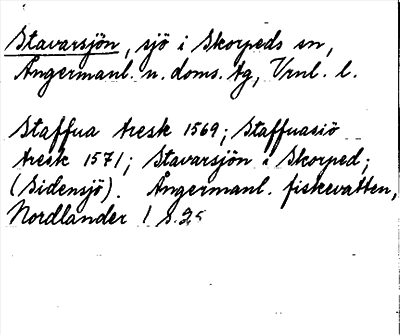 Stavarsjön, sjö i Skorpeds sn,
Ångermanl. n. doms. tg, Vrnl. l.
Staffua tresk 1569; Staffuasiö
tresk 1571; Stavarsjön i Skorped;
(Sidensjö). Ångermanl. fiskevatten,
Nordlander 1 s. 25